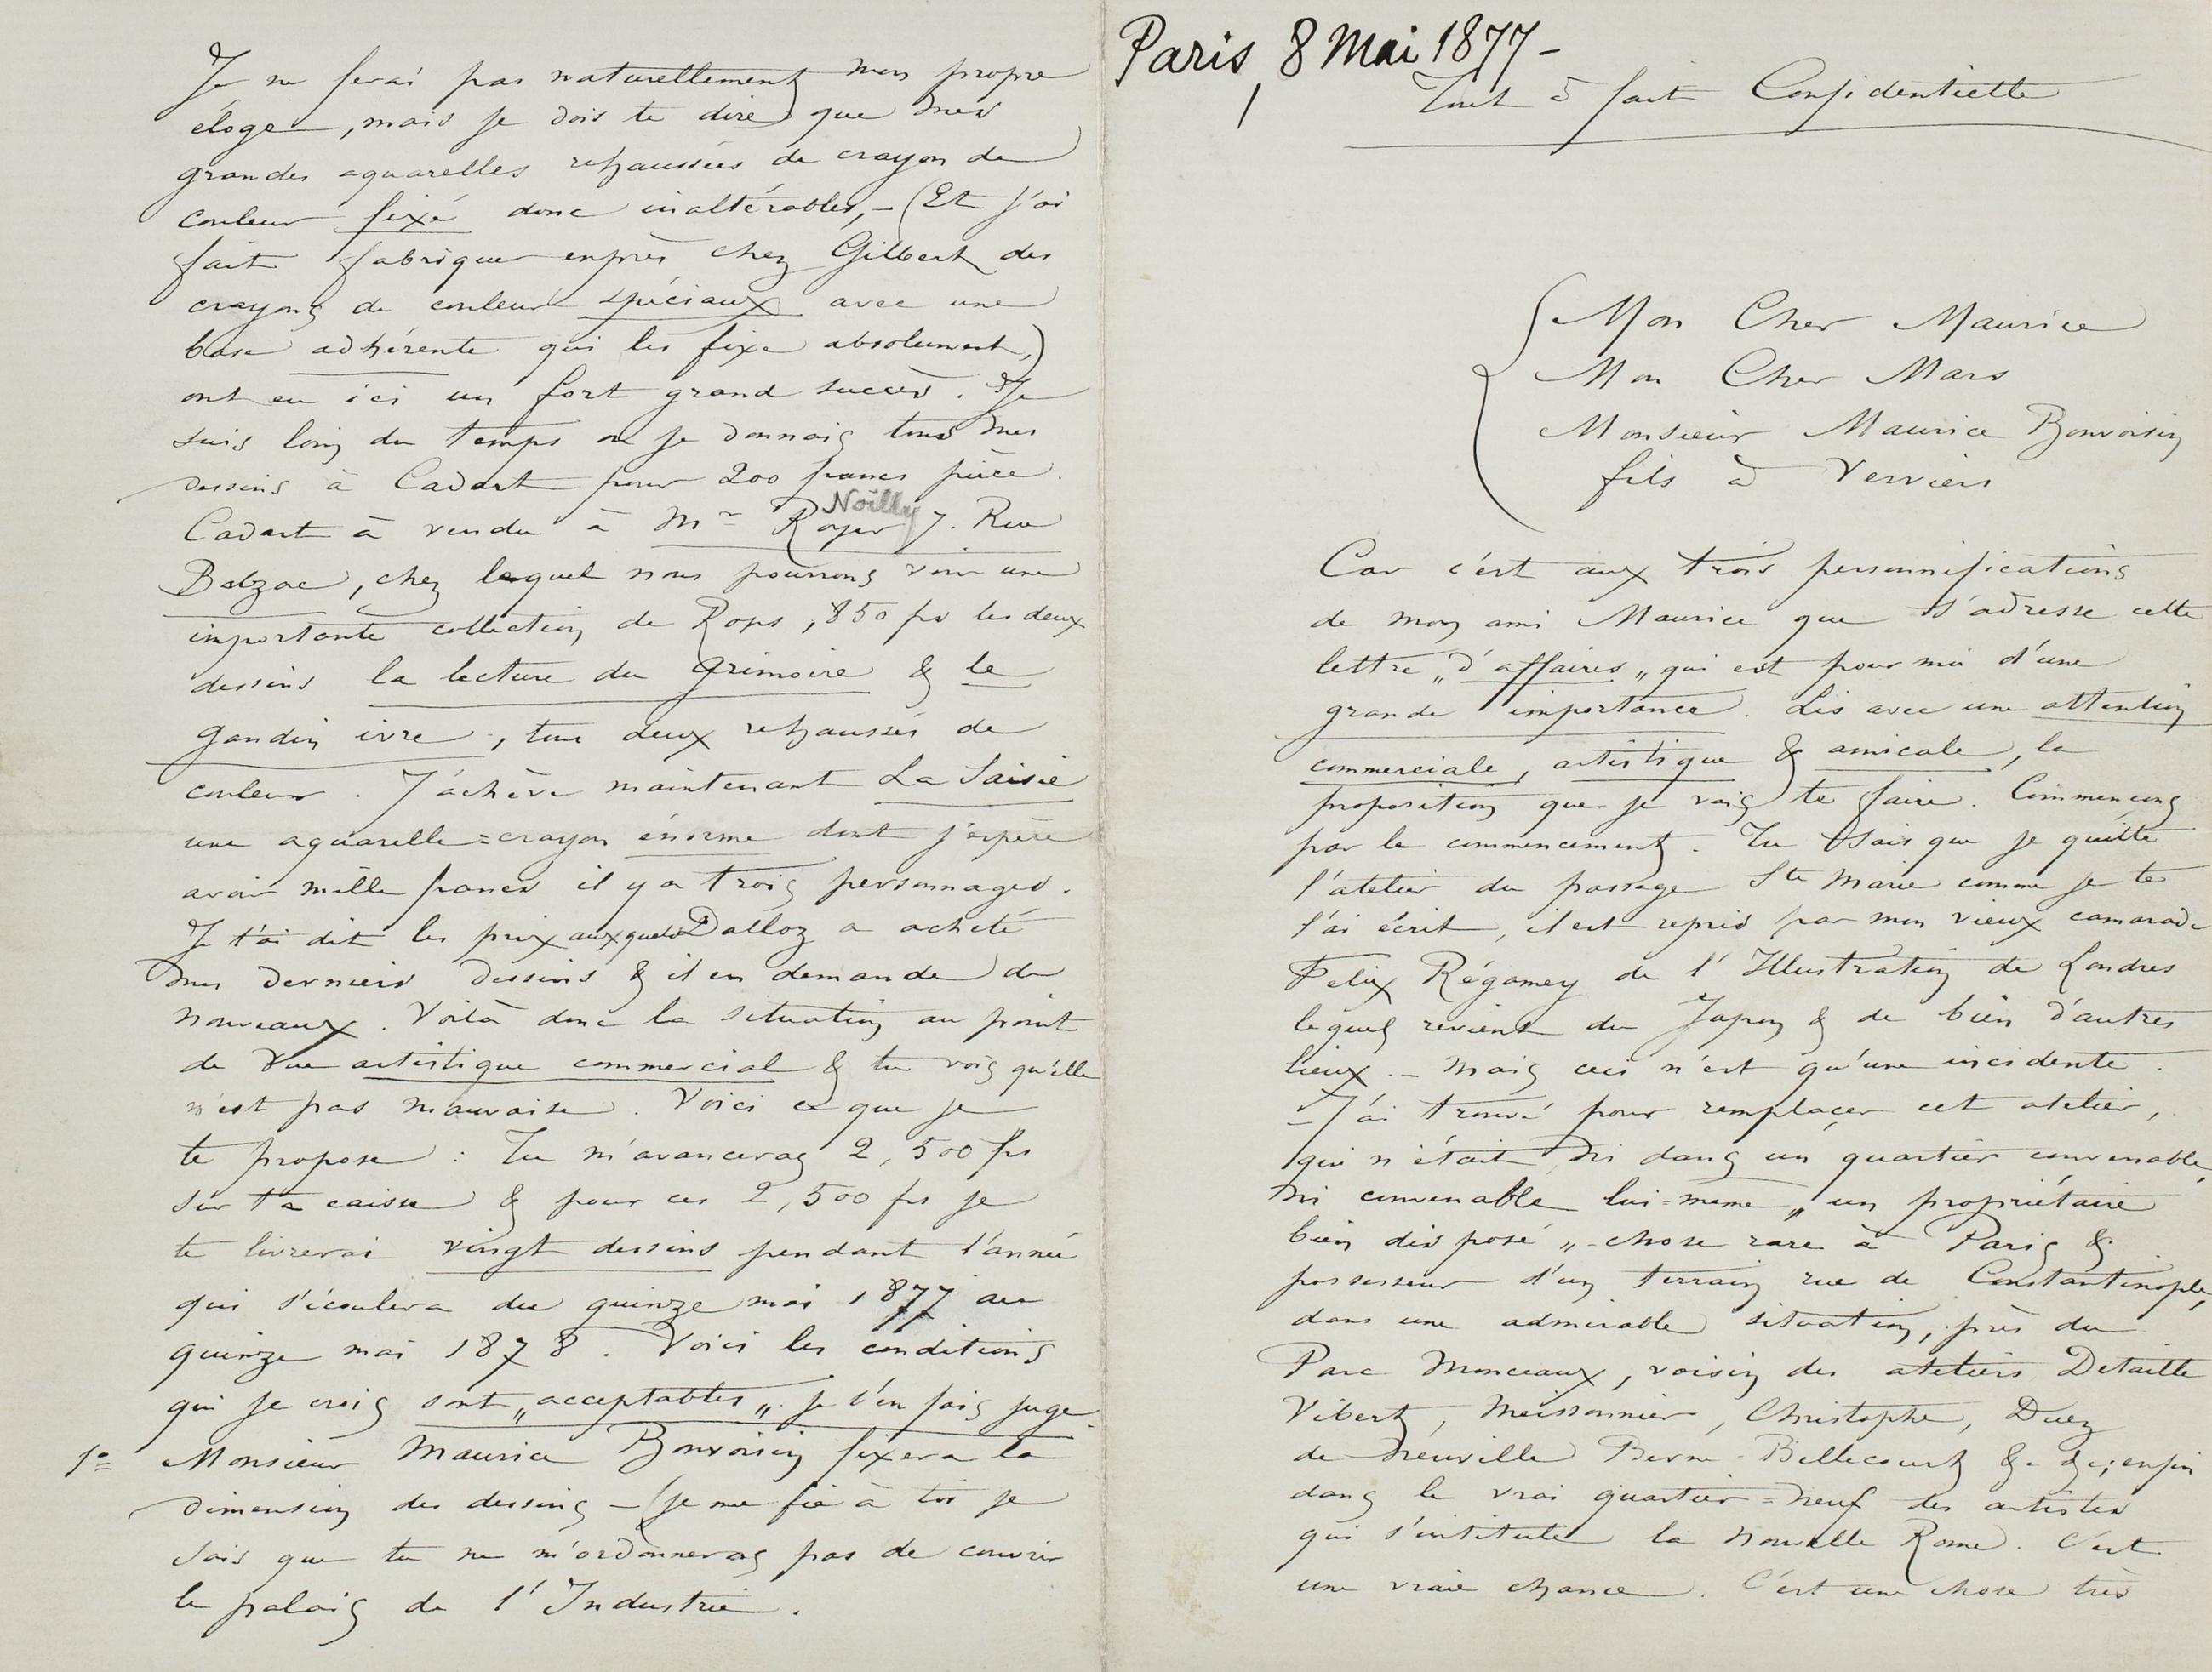 Paris, 8 Mai 1877 -
Tout à fait Confidentielle
Mon Cher Maurice
Mon Cher Mars
Monsieur Maurice Bonvoisin
fils à Verviers
Car c'est aux trois personnifications
de mon ami Maurice que s'adresse cette
lettre „d'affaires„ qui est pour moi d'une
grande importance. Lis avec une attention
commerciale, artistique & amicale, la
proposition que je vais te faire. Commençons
par le commencement. Tu sais que je quitte
l'atelier du passage Ste Marie comme je te
l'ai écrit, il est repris par mon vieux camarade
Felix Régamey de l'Illustration de Londres
lequel revient du Japon & de bien d'autres
lieux. – Mais ceci n'est qu'une incidente.
– J'ai trouvé pour remplacer cet atelier,
qui n'était ni dans un quartier convenable,
ni convenable lui=même „ un propriétaire
bien disposé „ – chose rare à Paris &
possesseur d'un terrain rue de Constantinople,
dans une admirable situation, près du
Parc Monceaux, voisin des ateliers Detaille
Vibert, Meissonnier, Christophe, Duez
de Neuville Berne-Bellecourt &. &; enfin
dans le vrai quartier=neuf des artistes
qui s'intitule la Nouvelle Rome. C'est
une vraie chance. C'est une chose très
Je ne ferai pas naturellement mon propre
éloge, mais je dois te dire que mes
grandes aquarelles rehaussées de crayon de
couleur fixé donc inaltérables, – (Et j'ai
fait fabriquer exprès chez Gilbert des
crayons de couleur spéciaux avec une
base adhérente qui les fixe absolument,)
ont eu ici un fort grand succès. Je
suis loin du temps où je donnais tous mes
dessins à Cadart pour 200 francs pièce.
Cadart à vendu à Mr Royer Noilly 7. Rue
Balzac, chez lequel nous pourrons voir une
importante collection de Rops, 850 frs les deux
dessins la lecture du grimoire & le
gandin ivre, tous deux rehaussés de
couleur. J'achève maintenant La Saisie
une aquarelle=crayon énorme dont j'espère
avoir mille francs il y a trois personnages.
Je t'ai dit les prix auxquels Dalloz a acheté
mes derniers dessins & il en demande de
nouveaux. Voilà donc la situation au point
de vue artistique commercial & tu vois qu'elle
n'est pas mauvaise. Voici ce que je
te propose : Tu m'avanceras 2,500 frs
sur ta caisse & pour ces 2,500 frs je
te livrerai vingt dessins pendant l'année
qui s'écoulera du quinze mai 1877 au
quinze mai 1878. Voici les conditions
qui je crois sont „acceptables„ je t'en fais juge.
1o Monsieur Maurice Bonvoisin fixera la
dimension des dessins – (je me fie à toi je
sais que tu ne m'ordonneras pas de couvrir
le palais de l'Industrie.